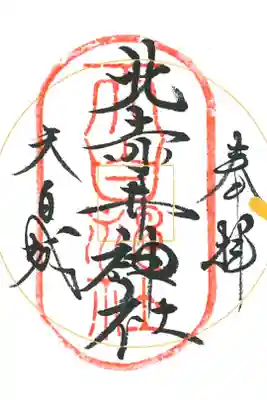 奉拝
北赤井神社
天白城